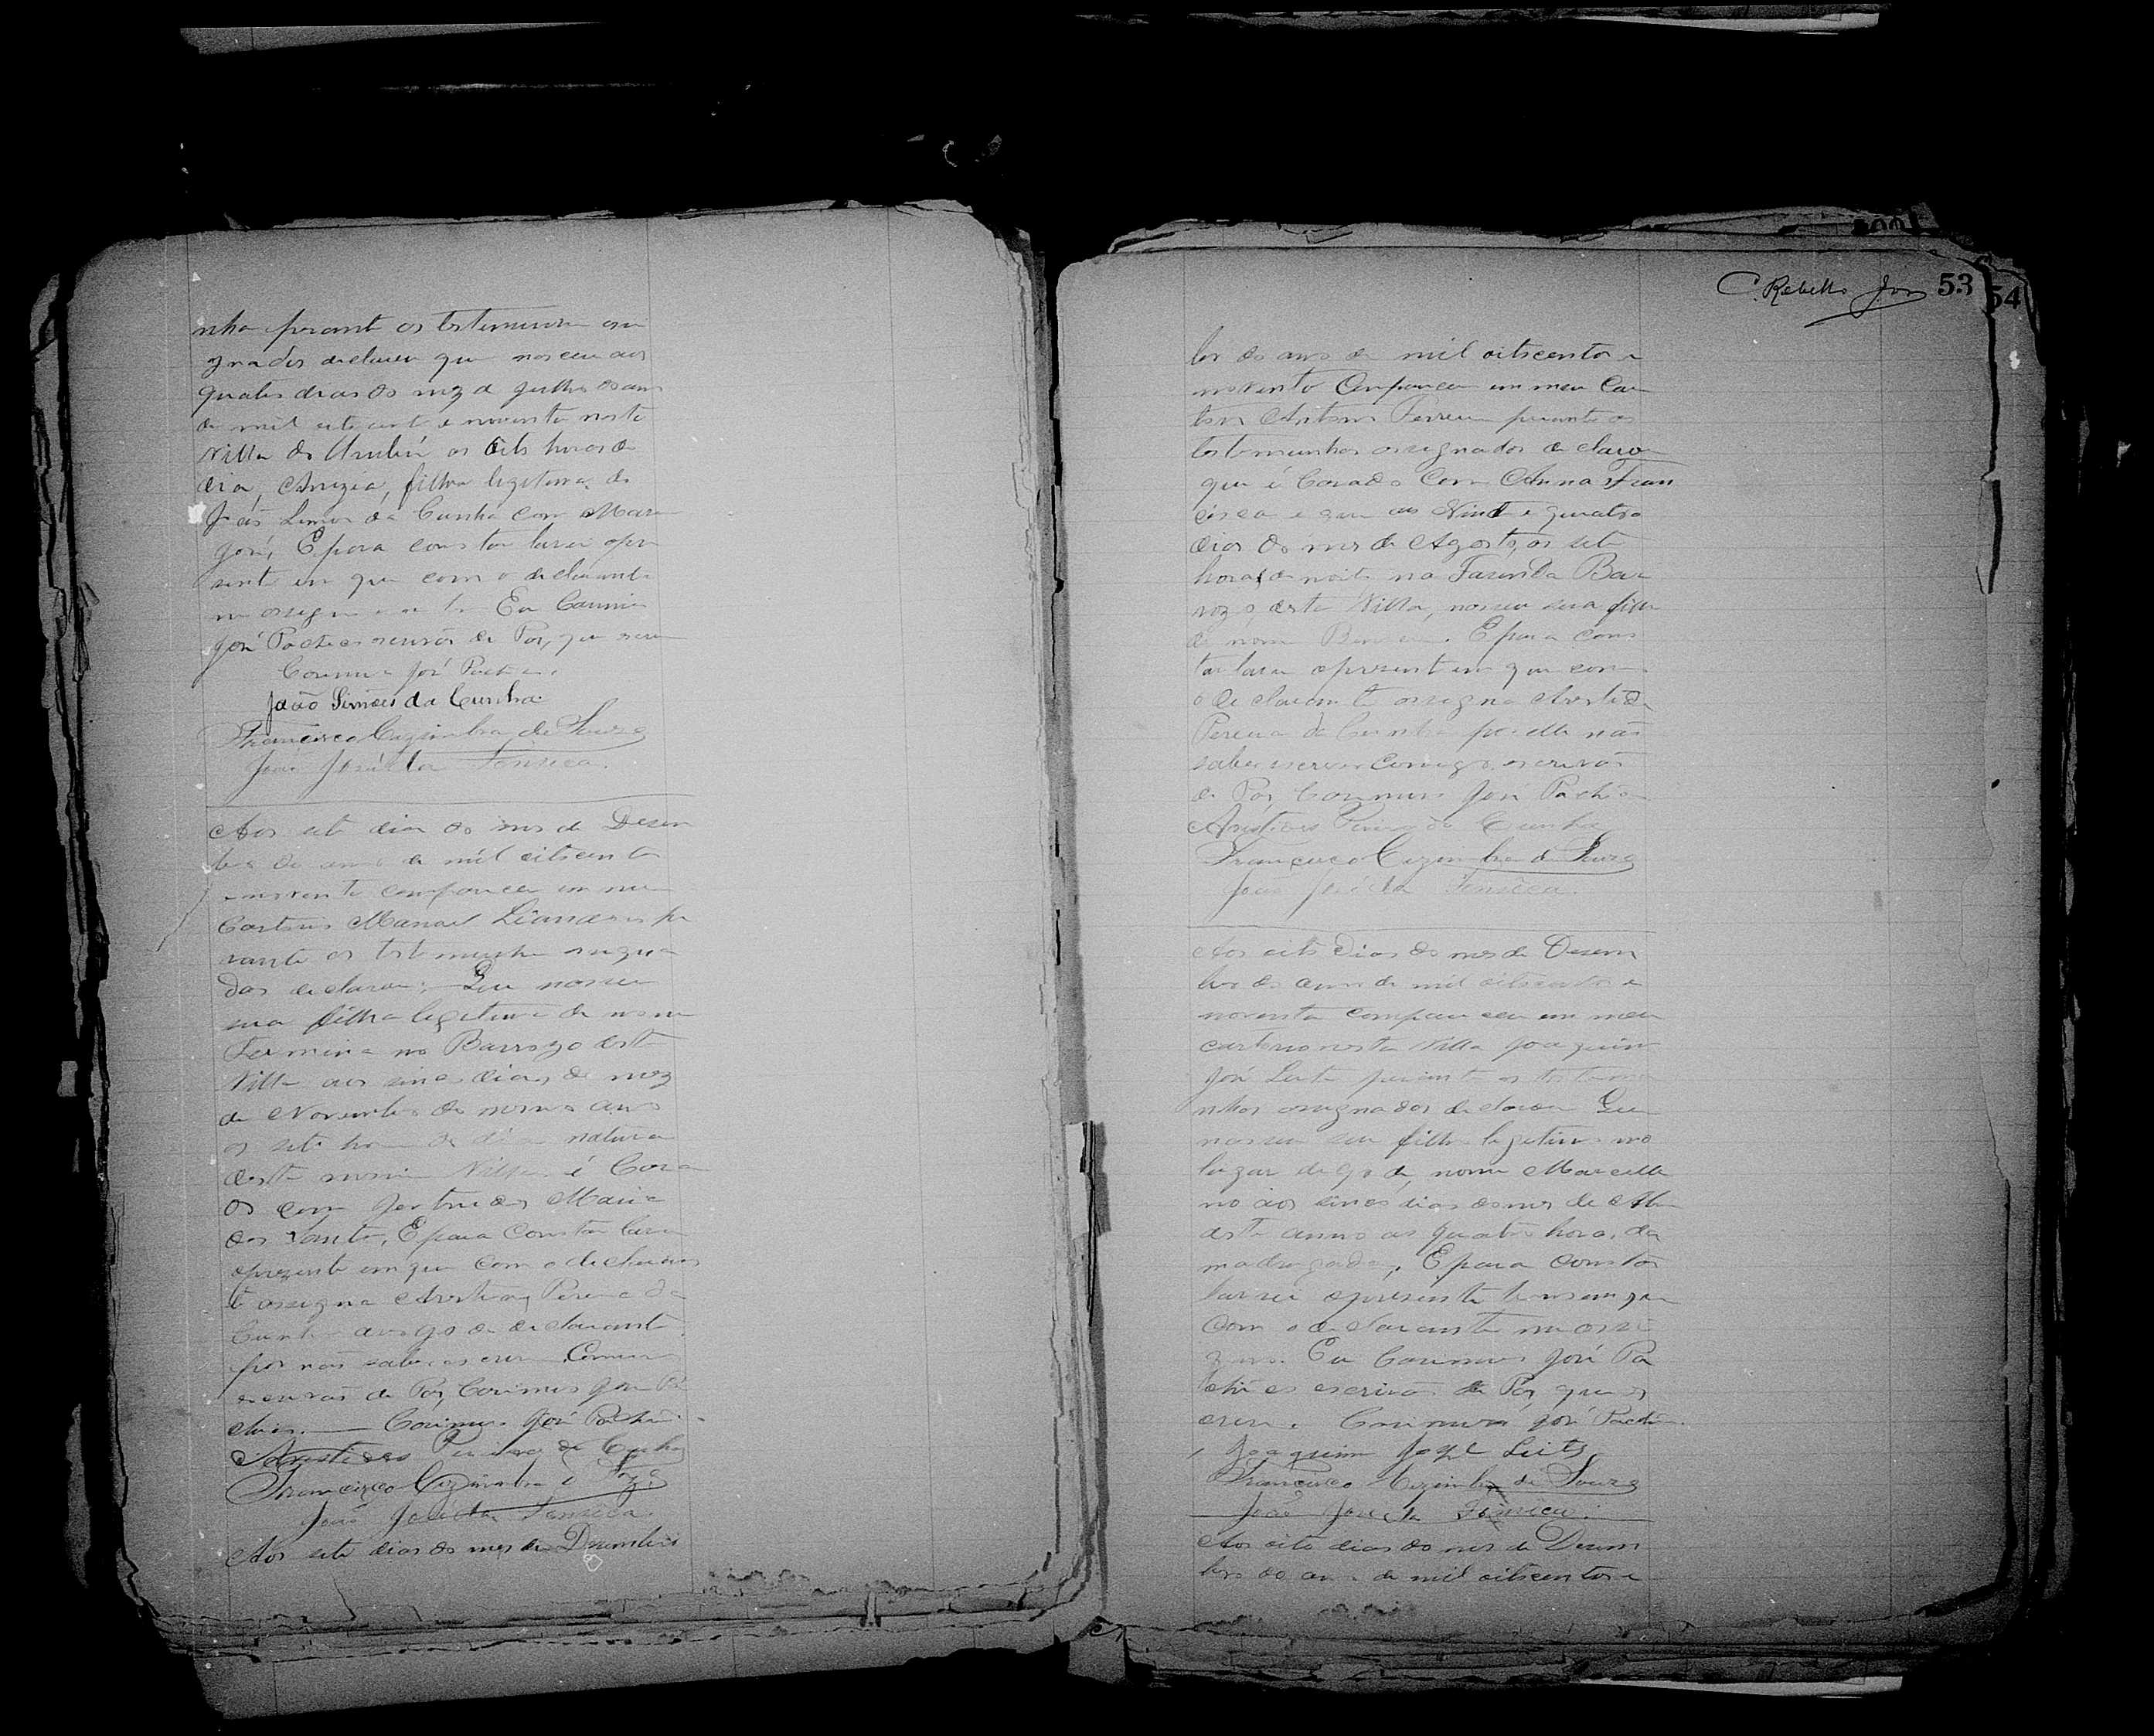 nha perante as testemunhas assi
gnados declarou que nasceu aos
quatro dias do mez de Julho do anno
de mil oito cento e noventa nesta
Villa do Urubú as oito horas do
dia, Anizia, filha legitima de
João Simões da Cunha com Maria
José, E para constar lavrei o pre
sente em que com o declarante
me assigno Eu Casimiro
José Pacheco escrivão de Paz, que escrevi
Casimiro José Pacheco
João Simões da Cunha
Francisco Cezimbra de Souza
João José da Fonseca.
Aos sete dias do mes de Desem
bro do anno de mil oitocento
e noventa compareceu em meu
Cartorio Manoel Leandro pe
rante as testemunhas assigna
das declarou: Que nasceu
sua filha legitima de nome
Fermina no Barrozo desta
Villa aos cinco dias do mez
de Novembro do mesmo anno
as sete horas do dia natural
desta mesma Villa é Casa
do com Gertrudes Maria
dos Santos, E para constar lavrei
o prezente em que com o declaran
te assigna Aristides Pereira da
Cunha a rogo do declarante
por não saber escrever Comigo
escrivão de Paz, Casimiro José Pa
checo. Casimiro José Pacheco
Aristides Pereira da Cunha
Francisco Cezimbra de Souza
João José da Fonseca
Aos sete dias do mes de Dezembro
C. Rebello Jor 53
54
bro do anno de mil oitocentos e
noventa Compareceu em meu Car
torio Antonio Ferreira perante as
testemunhas assignados declarou
que é Casado Com Anna Fran
cisca e que aos Vinte e quatro
dias do mes de Agosto, as sete
horas da noite na Fazenda Bar
rozo desta Villa, nasceu seu filho
de nome E para cons
tar lavrei o presente em que com
o declarante assigna Aristides
Pereira da Cunha por elle não
saber escrever Comigo escrivão
de Paz Casimiro José Pacheco
Aristides Pereira da Cunha
Francisco Cezimbra de Souza
João José da Fonseca.
Aos oito dias do mes de Desem
bro do anno de mil oitocentos e
noventa compareceu em meu
cartorio nesta Villa Joaquim
José Leite perante as testemu
nhas assignados declarou Que
nasceu seu filho legitimo no
lugar de nome Marcelli
no aos cinco dias do mes de
deste anno as quatro horas da
madrugada, E para constar
lavrei o presente termo em que
com o declarante me assi
gno. Eu Casimiro José Pa
checo escrivão de Paz, que es
crevi. Casimiro José Pacheco.
Joaquim José Leite
Francisco Cezimbra de Souza
João José da Fonseca.
Aos oito dias do mes de Desem
bro do anno de mil oitocentos e